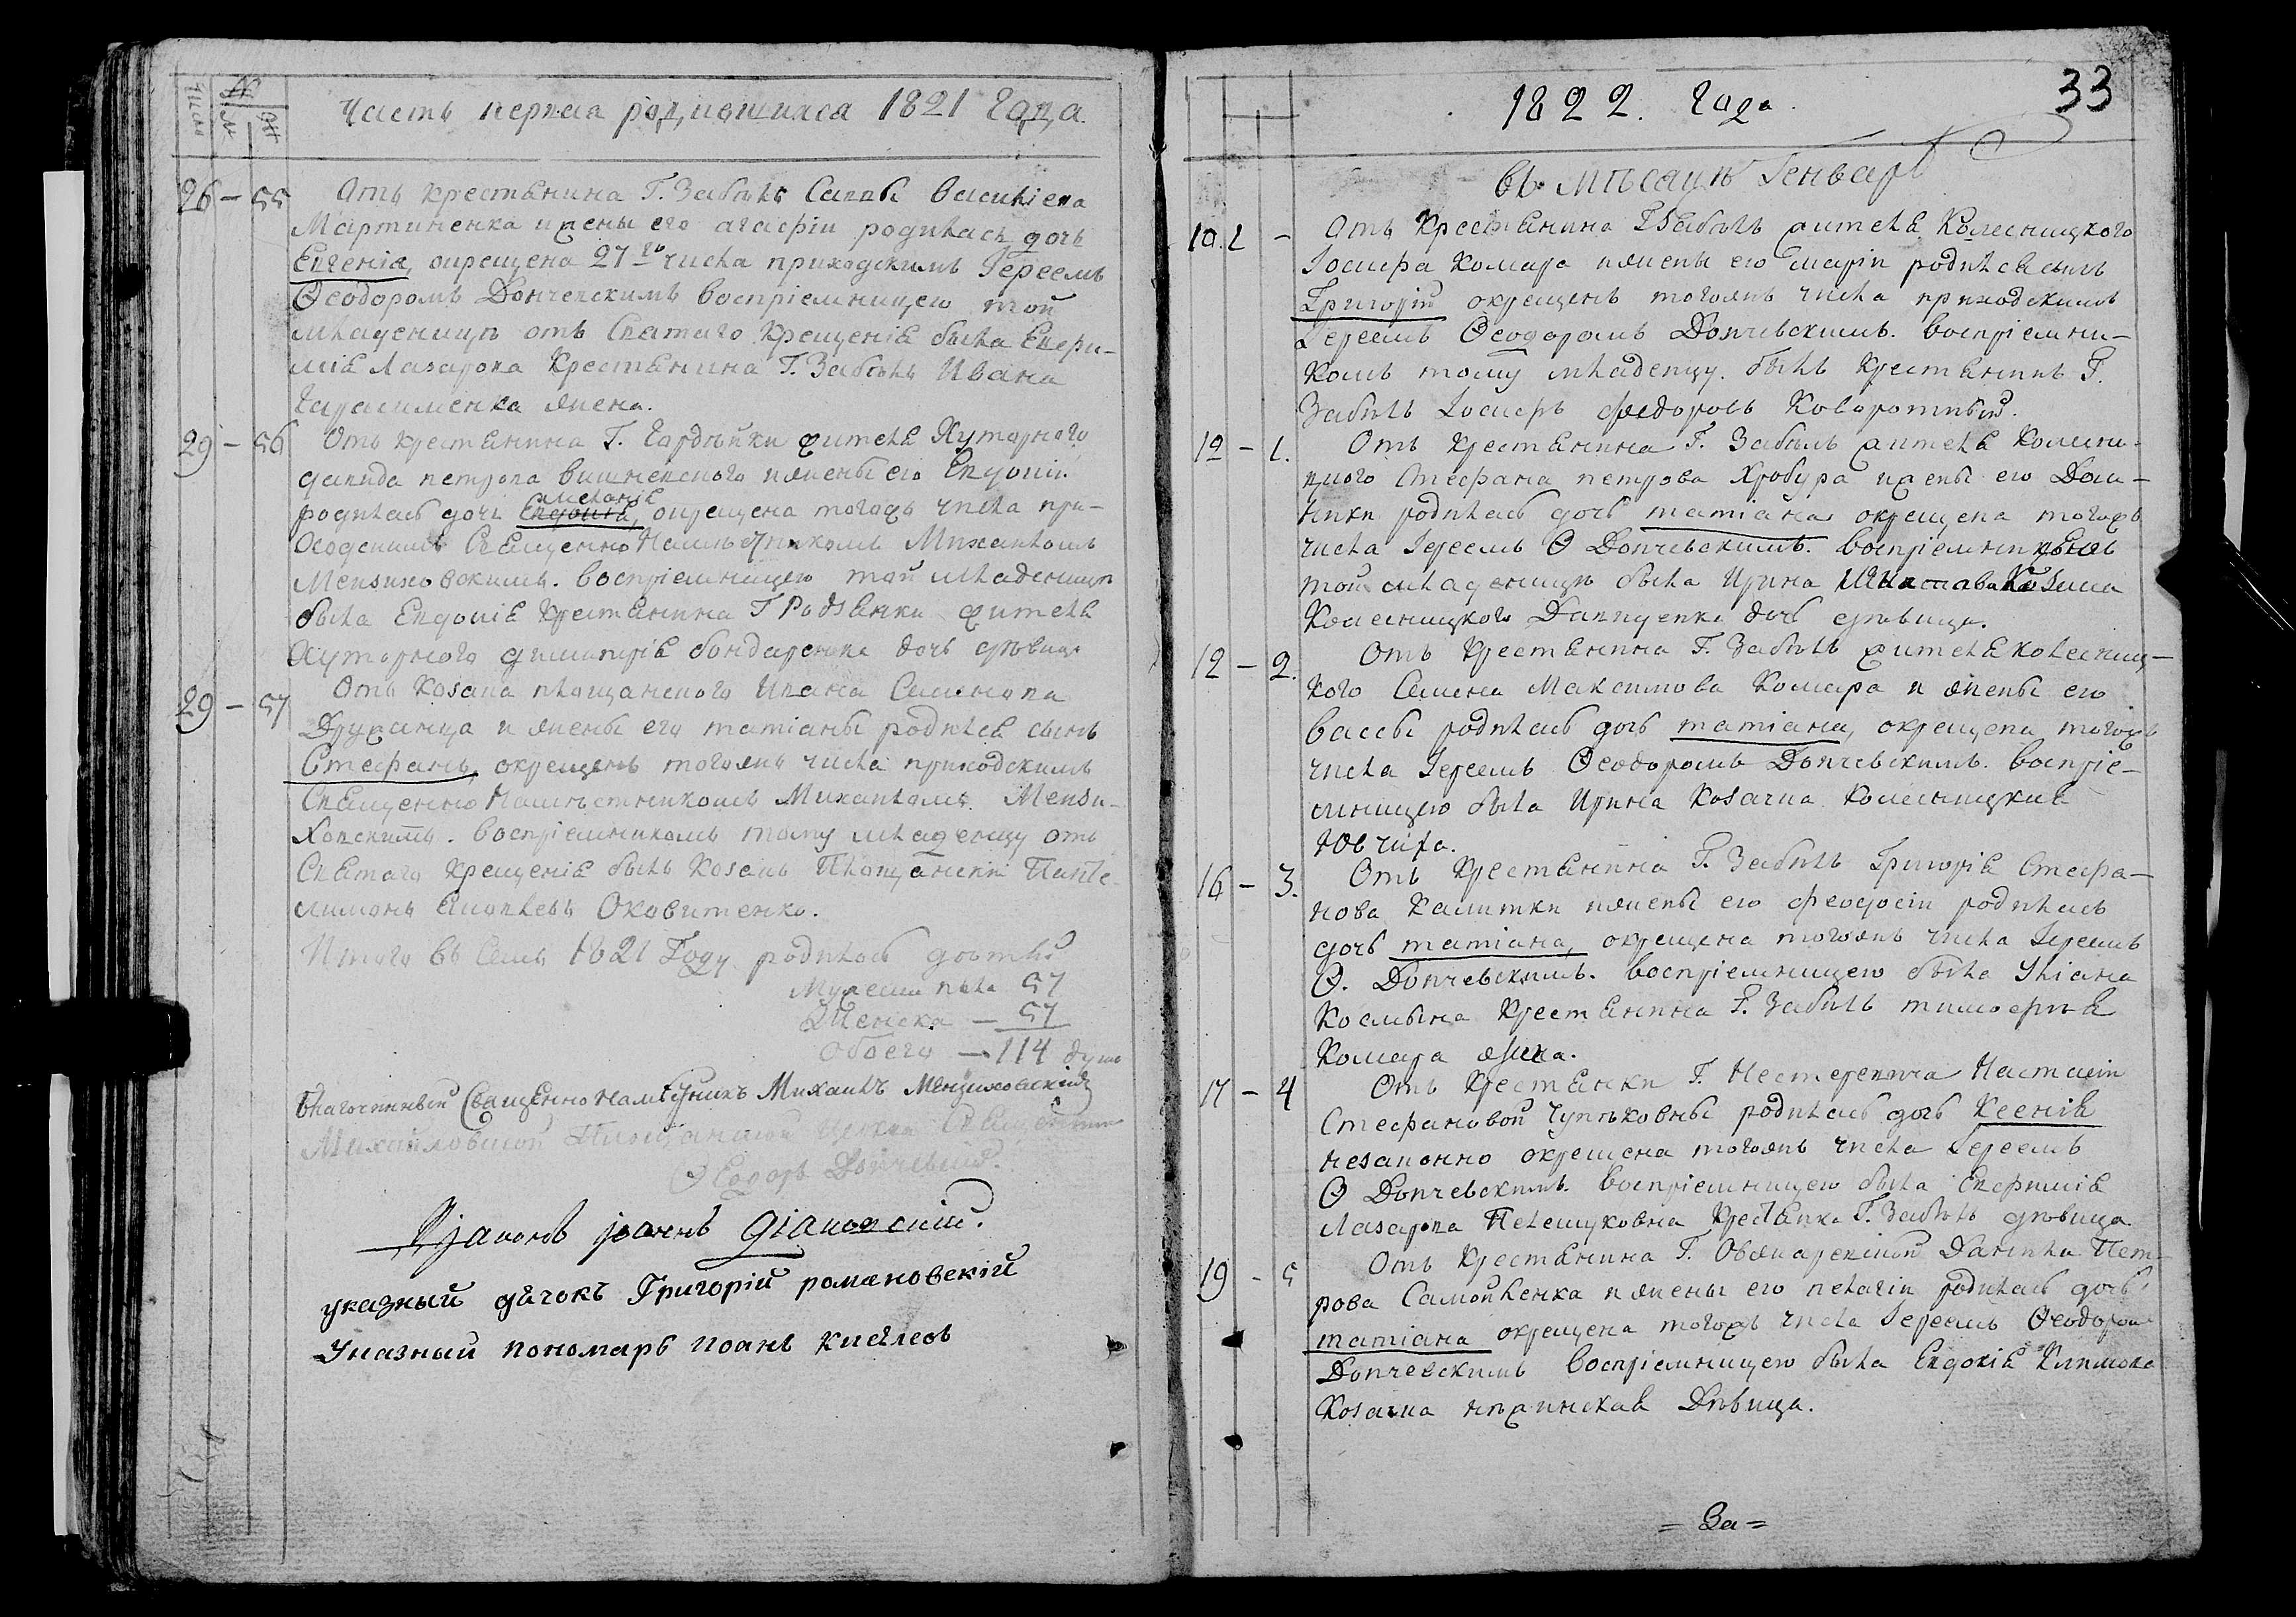 Часть первая родившихся 1821 Года
Числа
№
М
Ж
26 – 55 Отъ крестянина Г. Забѣлъ Саввы Василіева
Мартиненка ижены его агафіи родилась дочь
Евгенія, окрещена 27го числа приходскимъ Іереемъ
Ѳеодоромъ Дончевскимъ воспріемницею той
младеницѣ отъ Святаго крещенія была Евфи-
міа Лазарова Крестянина Г. Забѣлъ Ивана
Гарасименка жена.
29 – 56 Отъ крестянина Г. Гордѣйки жителя Хуторного
давида петрова вишневского ижены его Евдокіи
родилась дочь Евдокіа, окрещена тогожъ числа при-
ходскимъ Священно Намѣстникомъ Михаиломъ
Мензиховскимъ. воспріемницею той младеницѣ
была Евдокіа Крестянина Г Родзянки жителя
Хуторного димитріа бондаренка дочь дѣвица
29 – 57 Отъ козака площанского Ивана Семенова
Дружинца и жены его татіаны родился сынъ
Стефанъ, окрещенъ тогожъ числа приходскимъ
Священно Намѣстникомъ Михаиломъ Мензи-
ховскимъ. воспріемникомъ тому младенцу отъ
Святаго Крещеніа былъ козакъ Площанскій Панте-
лимонъ Оковитенко.
Итого въ Семъ 1821 Году родилось дѣтей
Мужеска пола 57
Женска – 57
Обоего – 114 душъ
Благочинный Священно намѣсникъ Михаилъ Мензиховскій
Михайловской Площанской церкви Священникъ
Ѳеодоръ Дончевскій.
Діаконъ іоаннъ Діаковскій.
указный дячокъ Григорій романовскій
Указный пономаръ иоанъ киялеов
1822. Года
33
въ мѣсяцѣ Генварѣ
10. 1 – Отъ Крестянина Г Забѣлъ жителя Колесницкого
Іосифа Комара ижены его маріи родился сынъ
Григорій окрещенъ тогожъ числа приходскимъ
Іереемъ Ѳеодоромъ Дончевскимъ. воспріемни-
комъ тому младенцу. былъ крестянинъ Г.
Забѣлъ Іосифъ федоровъ Коворотный.
12 – 1. Отъ Крестянина Г. Забѣлъ жителя Колесни-
цкого Стефана петрова Хробура ижены его Дом-
ники родилась дочь татіана окрещена тогожъ
числа Іереемъ Ѳ Дончевскимъ. воспріемницею
той младеницѣ была Ирина
Колесницкого Даниленка дочь дѣвица.
12 – 2. Отъ Крестянина Г. Забѣлъ жителя Колесниц-
кого Семена Максимова Комара и жены его
вассы родилась дочь татіана, окрещена тогожъ
числа Іереемъ Ѳеодоромъ Дончевскимъ. воспріе-
мницею была Ирина Козачка Колесницкаа
Ювчиха.
16 – 3. Отъ Крестянина Г. Забѣлъ Григоріа Стефа-
нова Калитки ижены его феодосіи родилась
дочь татіана, окрещена тогожъ числа Іереемъ
Ѳ. Дончевскимъ. воспріемницею была Уліана
Космына Крестянина Г. Забѣлъ тимофѣа
Комара жена.
17 – 4 Отъ Крестянки Г. Нестеревича Настасіи
Стефановой Чупѣковны родилась дочь Ксеніа
незаконно окрещена тогожъ числа Іереемъ
Ѳ Дончевскимъ. воспріемницею была Евфиміа
Лазарова Пелешуковна Крестянка Г. Забѣлъ дѣвица
19 – 5 Отъ Крестянина Г. Овжарекской Данила Пет-
рова Самойленка и жены его пелагіи родилась дочь
татіана окрещена тогожъ числа Іереемъ Ѳеодоромъ
Дончевскимъ воспріемницею была Евдокіа Климова
Козачка нѣжинскаа Дѣвица.
= За =